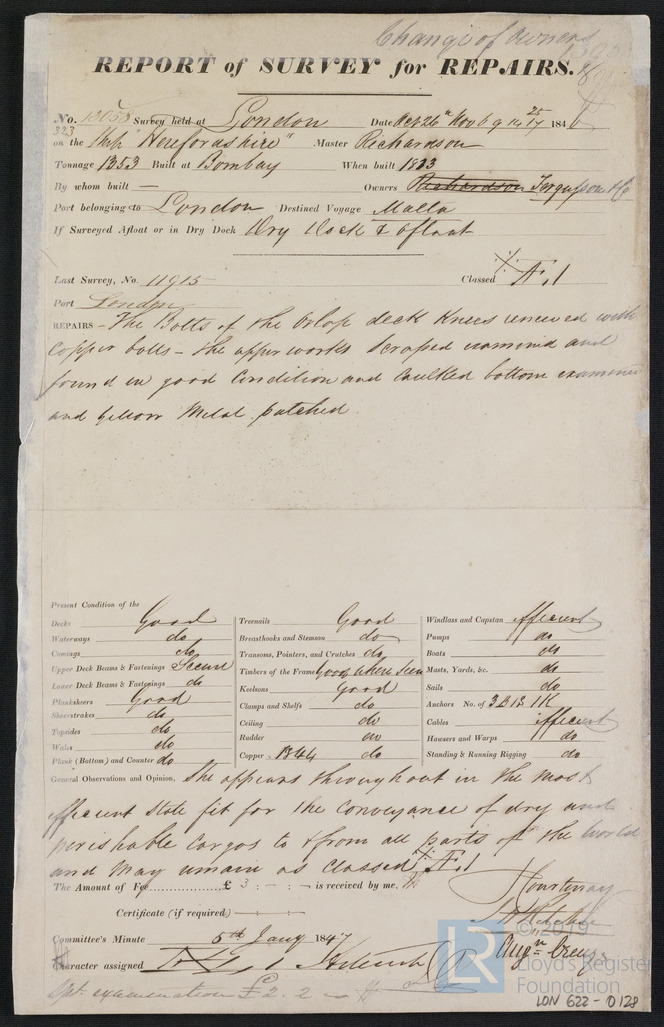 Change of Owners
REPORT of SURVEY for REPAIRS.
No. 13058 Survey held at London Date Oct 26th Nov 6 9 14 17 25 1846
323 on the Ship "Herefordshire" Master Richardson
Tonnage 1353 Built at Bombay When built 1813
By whom built — Owners Richardson Fergusson & Co
Port belonging to London Destined Voyage Malta
If Surveyed Afloat or in Dry Dock Dry Dock & afloat
Last Survey, No. 11915 Classed Æ.1
Port London
REPAIRS – The Bolts of the Orlop deck Knees renewed with
Copper bolts – the upper works scraped examined and
found in good Condition and Caulked bottom examined
and yellow Metal patched
Present Condition of the
Decks Good
Waterways do
Comings do
Upper Deck Beams & Fastenings Secure
Lower Deck Beams & Fastenings do
Planksheers Good
Sheerstrakes do
Topsides do
Wales do
Plank (Bottom) and Counter do
Treenails Good
Breasthooks and Stemson do
Transoms, Pointers, and Crutches do
Timbers of the Frame Good where seen
Keelsons Good
Clamps and Shelfs do
Ceiling do
Rudder do
Copper 1844 do
Windlass and Capstan efficient
Pumps do
Boats do
Masts, Yards, &c. do
Sails do
Anchors No. of 3 B 1 S 1 K
Cables efficient
Hawsers and Warps do
Standing & Running Rigging do
General Observations and Opinion, She appears throughout in the most
efficient State fit for the Conveyance of dry and
perishable Cargos to & from all parts of the World
and may remain as Classed Æ.1
The Amount of Fee £ 3 : - : - is received by me,
Courtenay
Certificate (if required)
Committee's Minute 5th Jany 1847
Augn Creuze
Character assigned
Spl. examination £2. 2 —
LR
© 2019
Lloyd's Register
Foundation
LON 622-0128